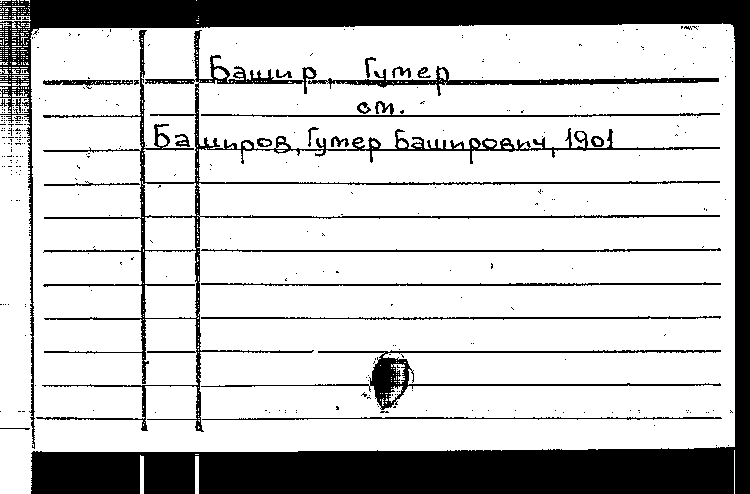 Башир, Гумер
см.
Баширов, Гумер Баширович, 1901